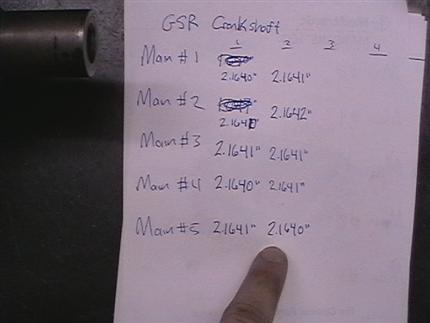 GSR Crankshaft
1 2 3 4
Main #1
2.1640" 2.1641"
Main #2 2.1642"
2.1641"
Main #3 2.1641" 2.1641"
Main #4 2.1640" 2.1641"
Main #5 2.1641" 2.1640"